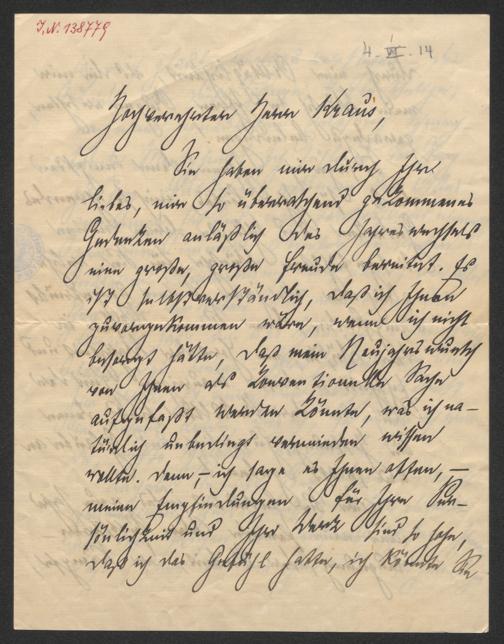 I.N. 138779
4. VI. 14
Hochverehrter Herr Kraus,
Sie haben mir durch Ihr
liebes, mir so überraschend gekommenes
Gedenken anläßlich des Jahreswechsels
eine große, große Freude bereitet. Es
ist selbstverständlich, daß ich Ihnen
zuvorgekommen wäre, wenn ich nicht
besorgt hätte, daß mein Neujahrswunsch
von Ihnen als konventionelle Sache
aufgefaßt werden könnte, was ich na-
türlich unbedingt vermieden wissen
wollte. Denn, – ich sage es Ihnen offen, –
meine Empfindungen für Ihre Per-
sönlichkeit und Ihr Werk sind so hohe,
daß ich das Gefühl hatte, ich könnte Sie